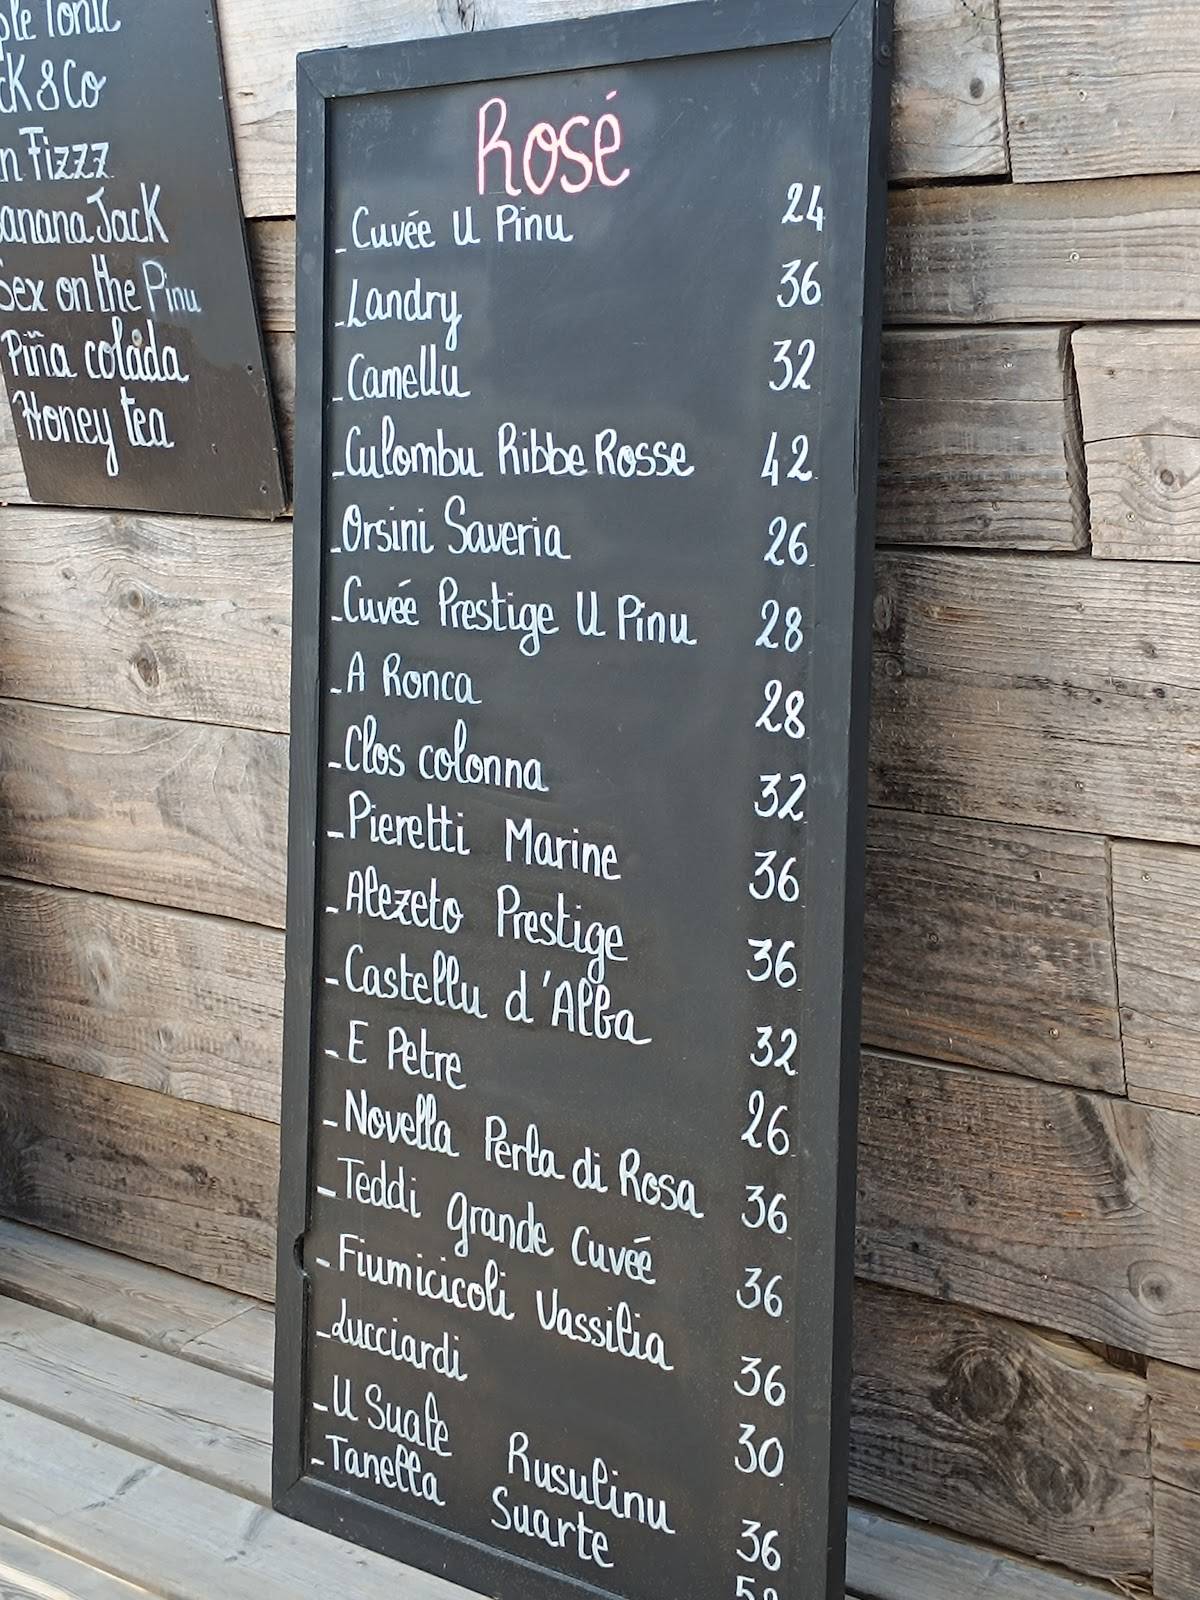 Tonic
K & Co
Fizzz
Jack
Sex on the Pinu
Piña colada
Honey tea
Rosé
- Cuvée U Pinu 24
- Landry 36
- Camellu 32
- Culombu Ribbe Rosse 42
- Orsini Saveria 26
- Cuvée Prestige U Pinu 28
- A Ronca 28
- Clos colonna 32
- Pieretti Marine 36
- Alezeto Prestige 36
- Castellu d'Alba 32
- E Petre 26
- Novella Perla di Rosa 36
- Teddi grande Cuvée 36
- Fiumicicoli Vassilia 36
- Lucciardi 30
- U Suale Rusulinu 36
- Tanella Suarte